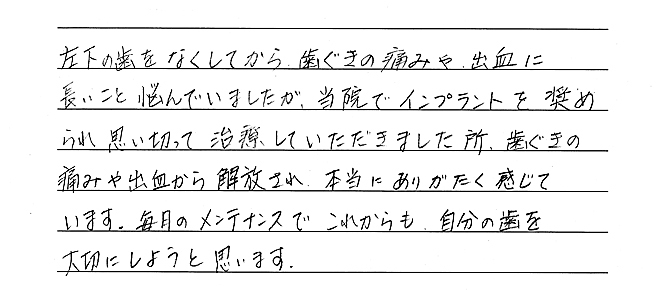 左下の歯をなくしてから、歯ぐきの痛みや、出血に
長いこと悩んでいましたが、当院でインプラントを奨め
られ思い切って治療していただきました所、歯ぐきの
痛みや出血から解放され、本当にありがたく感じて
います。毎月のメンテナンスでこれからも、自分の歯を
大切にしようと思います。